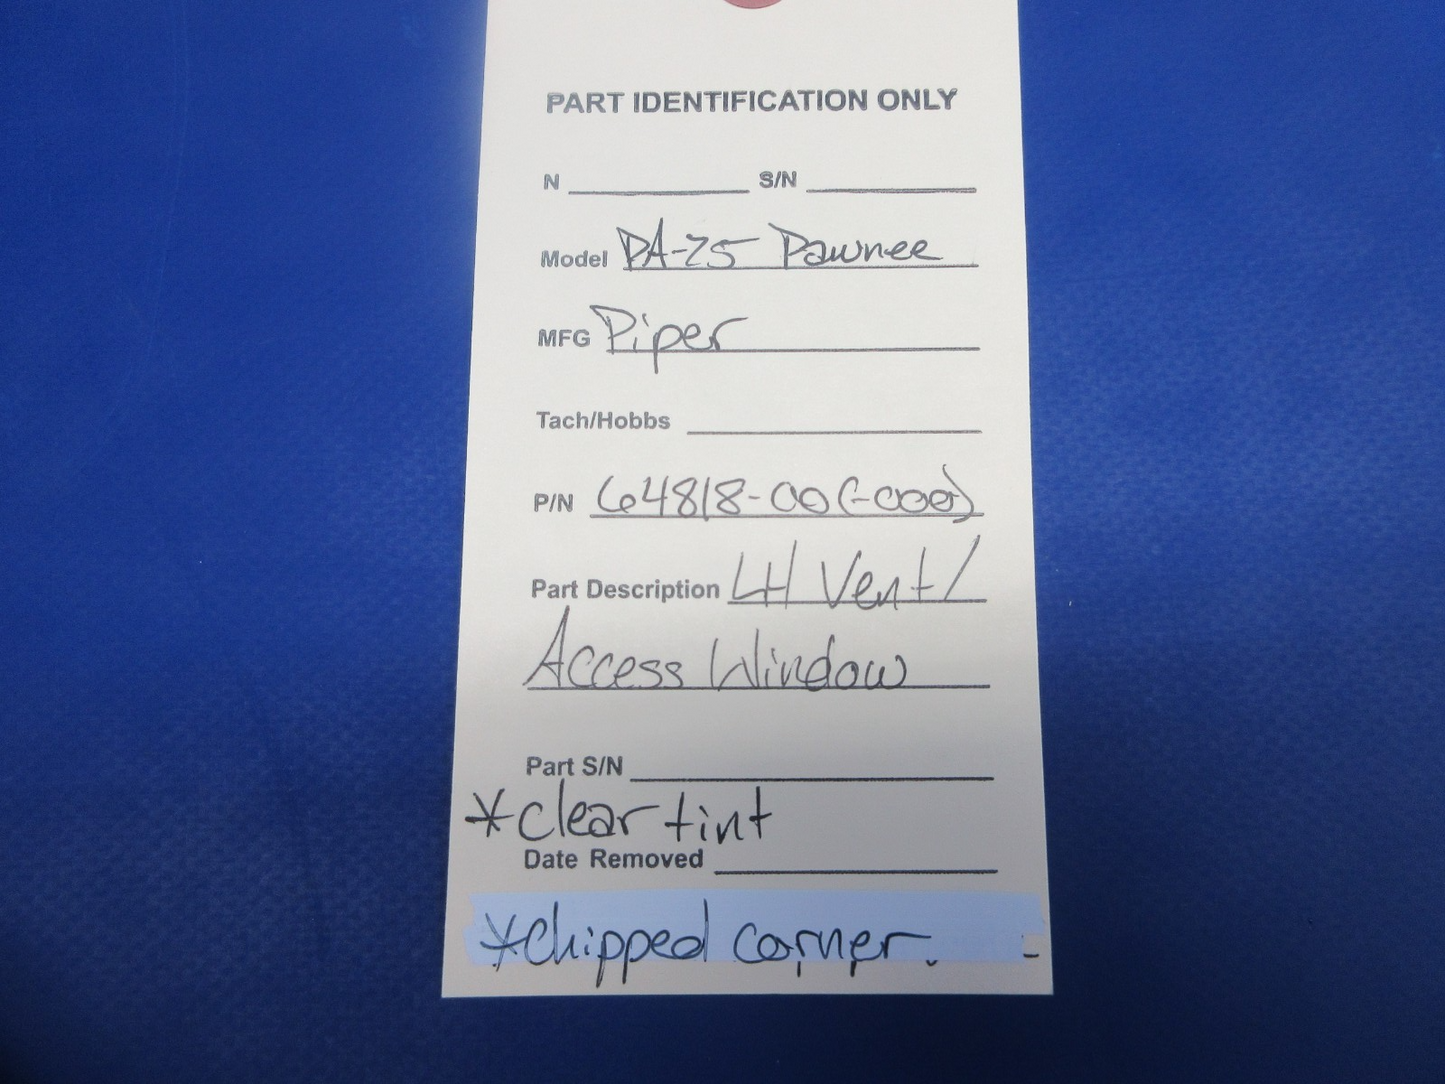 PART IDENTIFICATION ONLY
N S/N
Model PA-25 Pawnee
MFG Piper
Tach/Hobbs
P/N 64818-00 (-000)
Part Description LH Vent/
Access Window
Part S/N
*clear tint
Date Removed
*chipped corner.